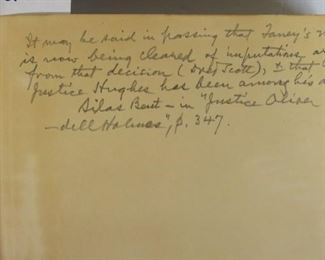 It may be said in passing that Taney's
is now being cleared of imputations
from that decision (Dred Scott), & that
Justice Hughes has been among his
Silas Bent — in "Justice Oliver
— dell Holmes", p. 347.